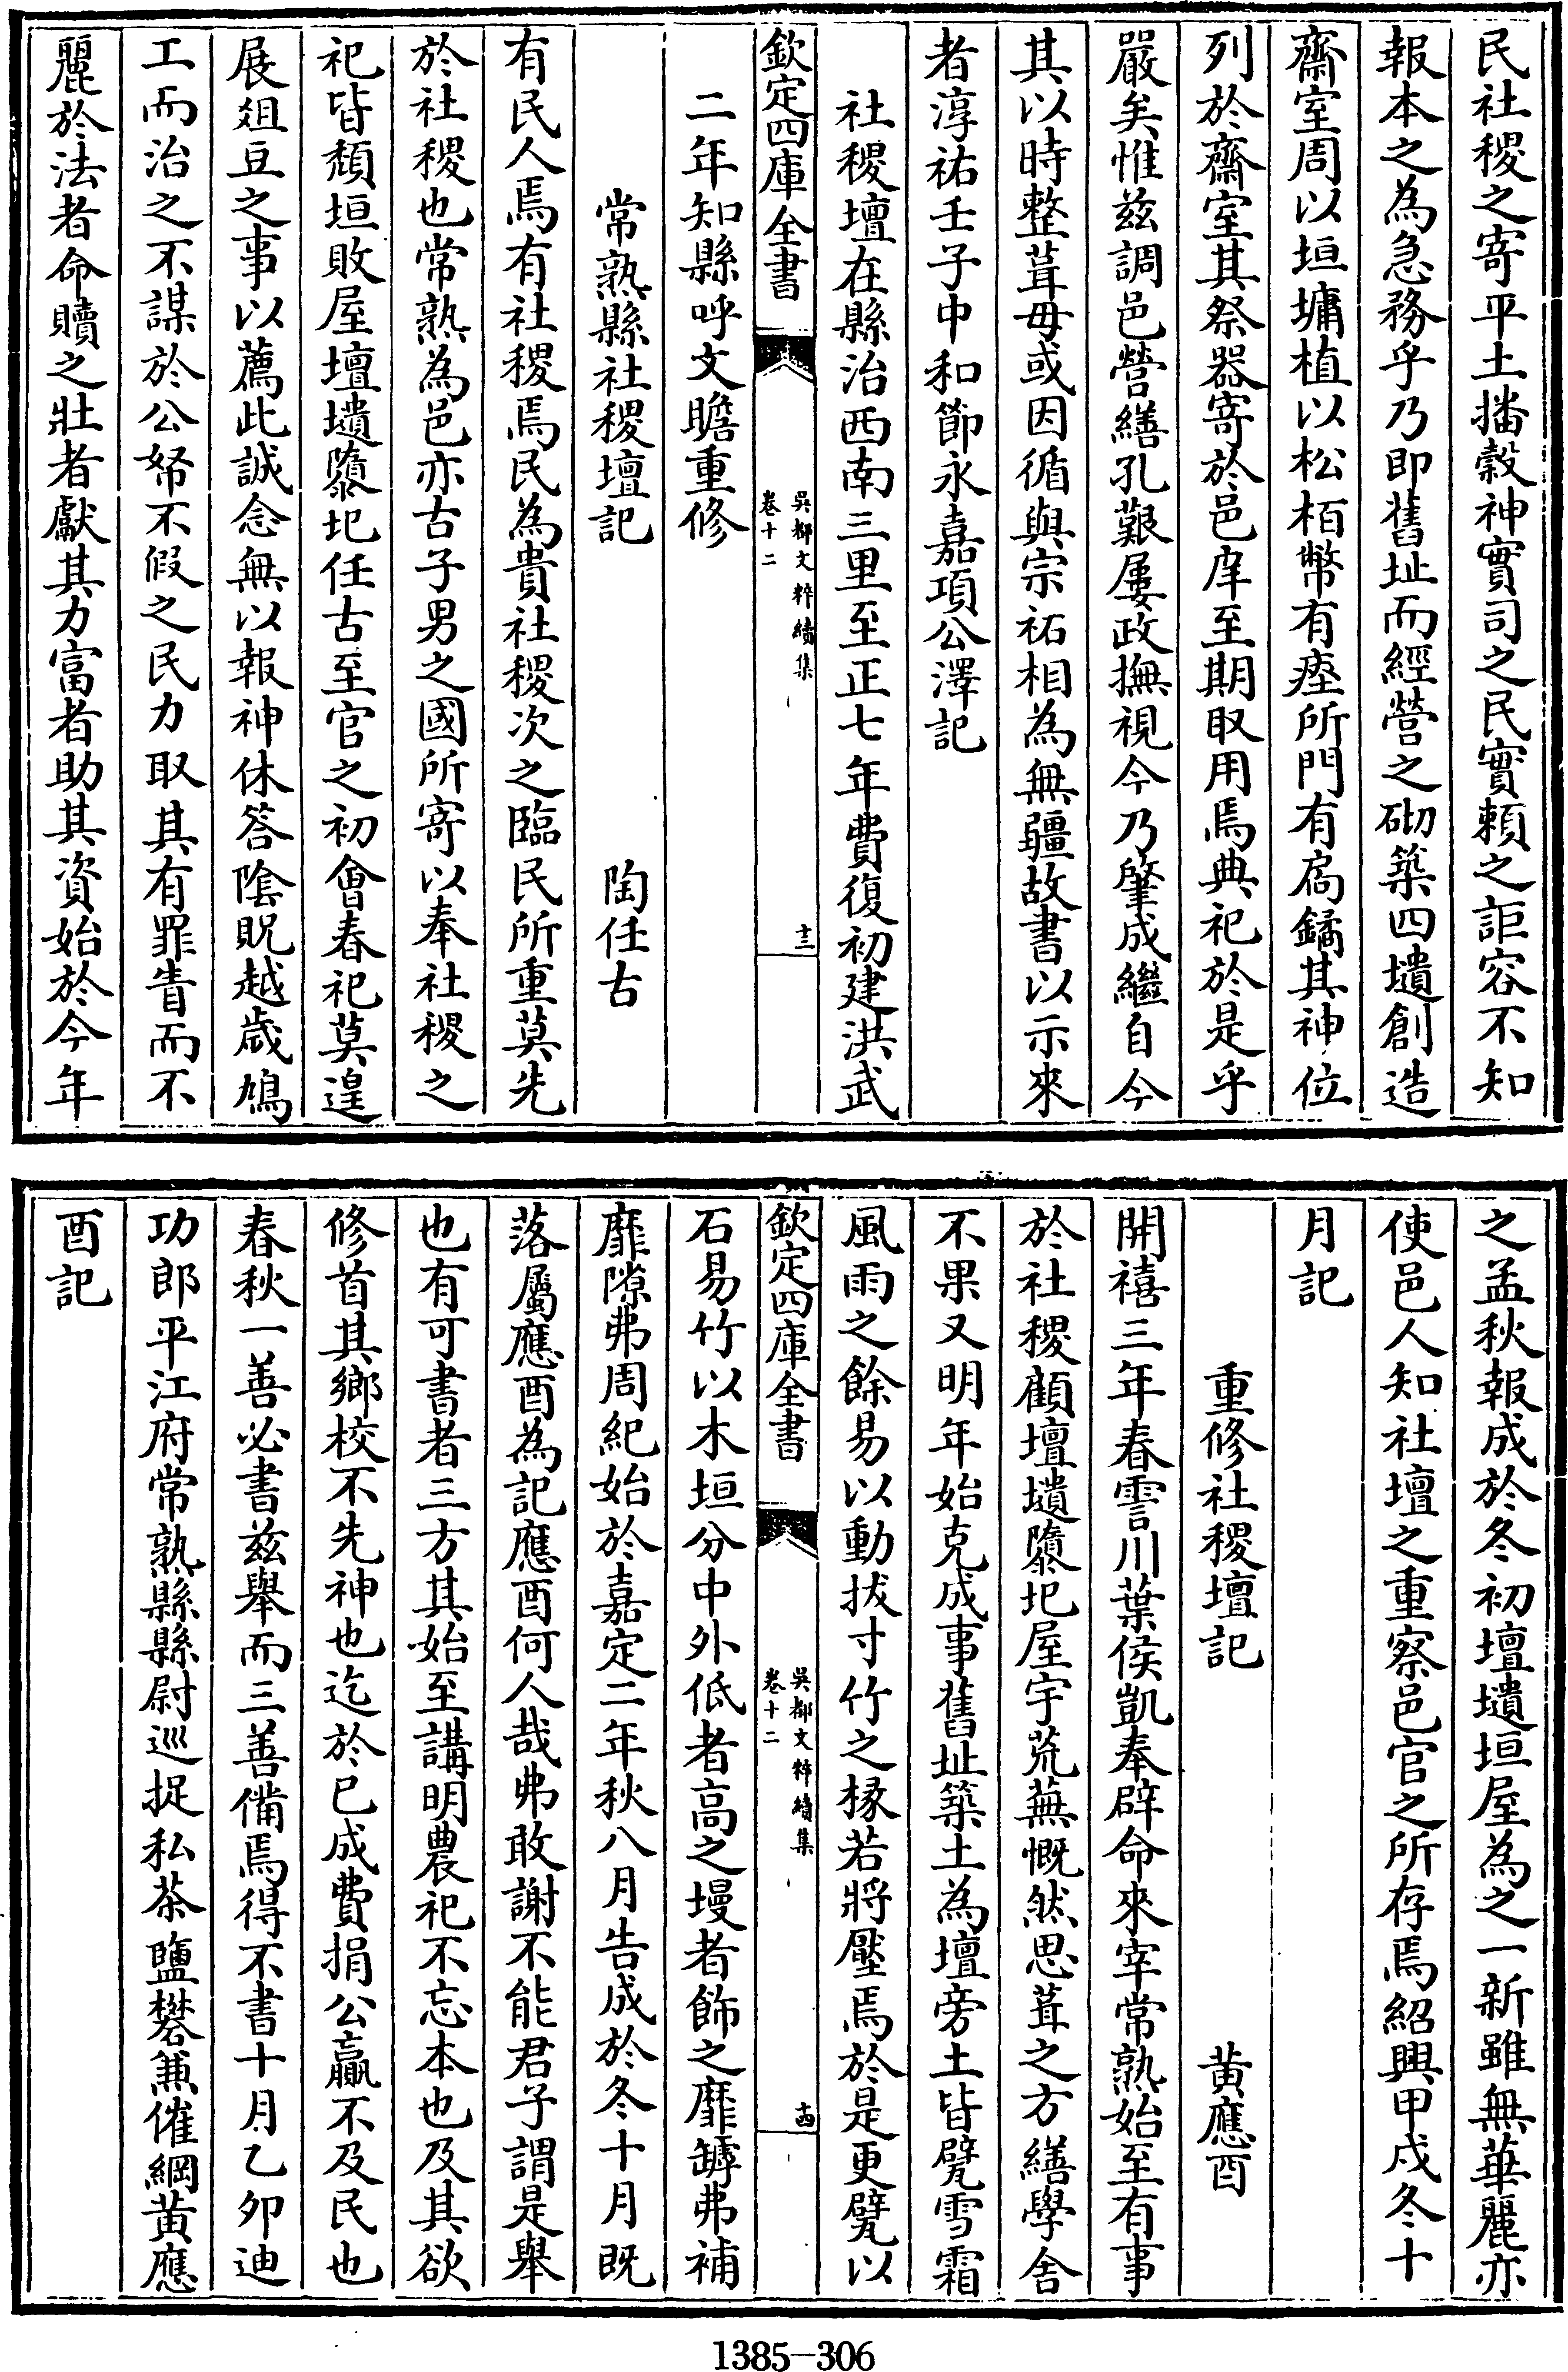 民社稷之寄平土播穀神實司之民實賴之詎容不知
報本之為急務乎乃即舊址而經營之砌築四壝創造
齋室周以垣墉植以松栢幣有瘞所門有扃鐍其神位
列於齋室其祭器寄於邑庠至期取用焉典祀於是乎
嚴矣惟兹調邑營繕孔艱屢政撫視今乃肇成繼自今
其以時整葺毋或因循與宗祏相為無疆故書以示來
者淳祐壬子中和節永嘉項公澤記
社稷壇在縣治西南三里至正七年費復初建洪武
欽定四庫全書
吳都文粹續集
卷十二
十三
二年知縣呼文瞻重修
常熟縣社稷壇記
陶任古
有民人焉有社稷焉民為貴社稷次之臨民所重莫先
於社稷也常熟為邑亦古子男之國所寄以奉社稷之
祀皆頹垣敗屋壇壝隳圮任古至官之初會春祀莫遑
展俎豆之事以薦此誠念無以報神休答陰貺越歲鳩
工而治之不謀於公帑不假之民力取其有罪眚而不
麗於法者命贖之壯者獻其力富者助其資始於今年
之孟秋報成於冬初壇壝垣屋為之一新雖無華麗亦
使邑人知社壇之重察邑官之所存焉紹興甲戍冬十
月記
重修社稷壇記
黃應酉
開禧三年春霅川葉侯凱奉辟命來宰常熟始至有事
於社稷顧壇壝隳圮屋宇荒蕪慨然思葺之方繕學舍
不果又明年始克成事舊址築土為壇旁土皆甓雪霜
風雨之餘易以動拔寸竹之椽若將壓焉於是更甓以
欽定四庫全書
吳都文粹續集
卷十二
十四
石易竹以木垣分中外低者高之墁者飾之靡罅弗補
靡隙弗周紀始於嘉定二年秋八月告成於冬十月既
落屬應酉為記應酉何人哉弗敢謝不能君子謂是舉
也有可書者三方其始至講明農祀不忘本也及其欲
修首其鄉校不先神也迄於已成費捐公贏不及民也
春秋一善必書兹舉而三善備焉得不書十月乙卯迪
功郎平江府常熟縣縣尉巡捉私茶鹽礬兼催綱黃應
酉記
1385-306